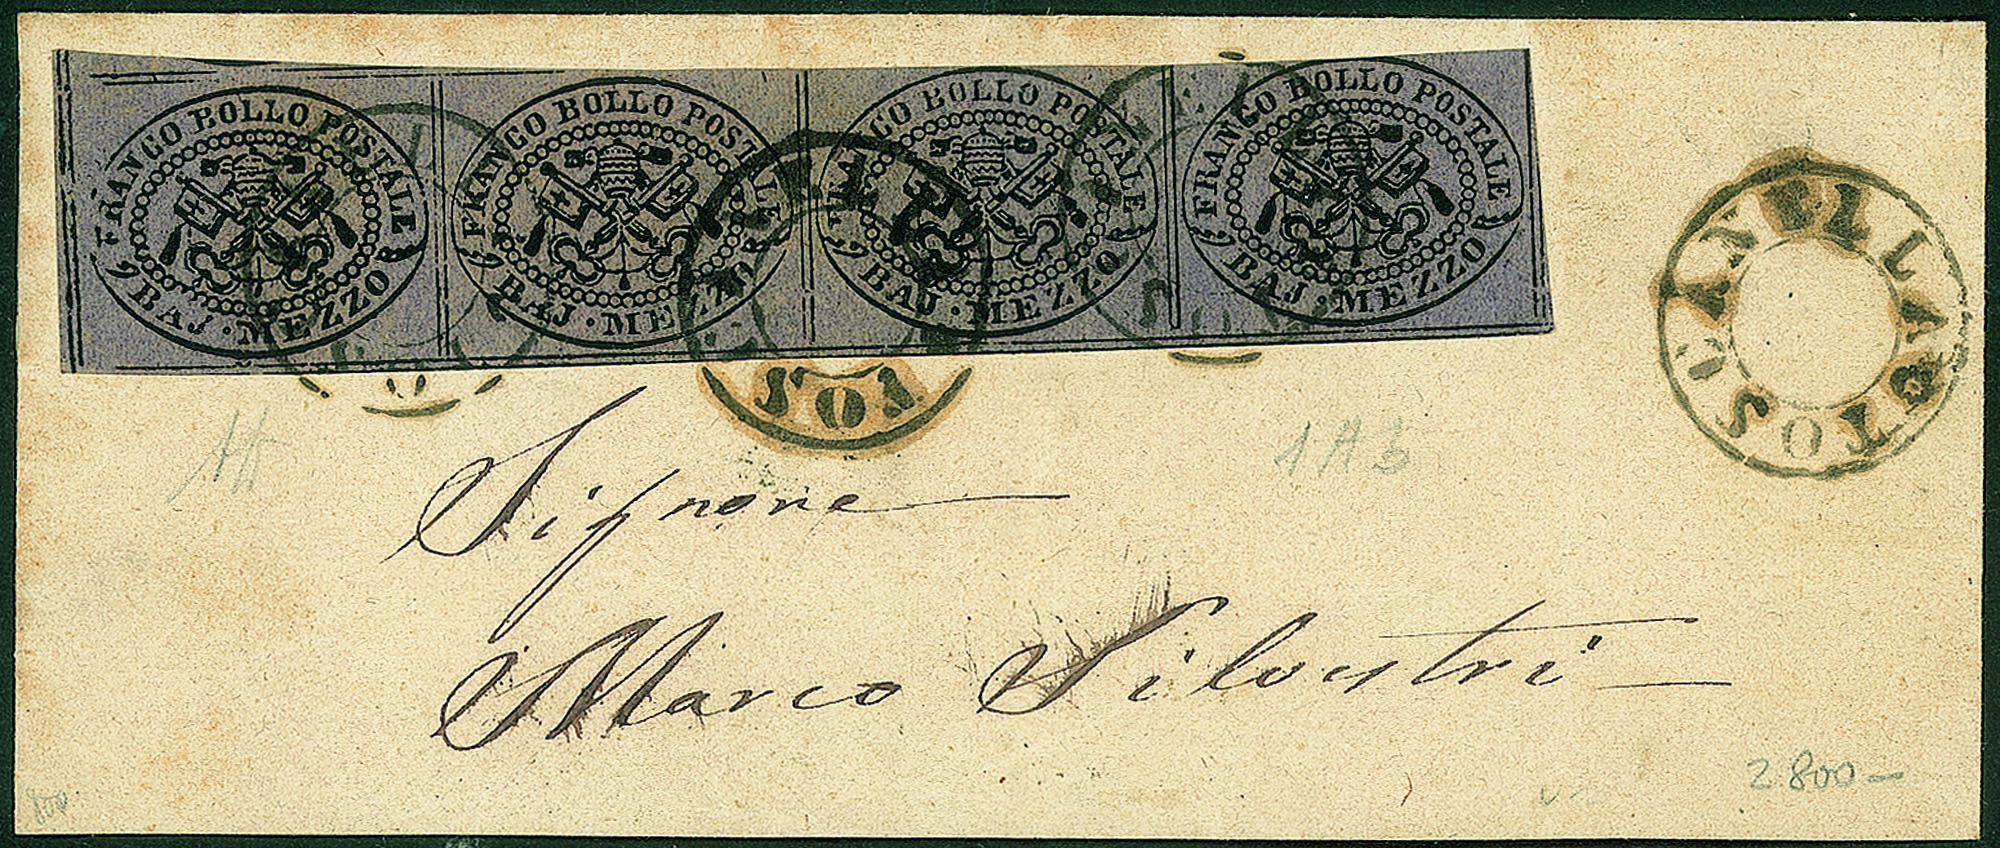 FRANCO BOLLO POSTALE
BAJ · MEZZO
FRANCO BOLLO POSTALE
BAJ · MEZZO
FRANCO BOLLO POSTALE
BAJ · MEZZO
FRANCO BOLLO POSTALE
BAJ · MEZZO
TOSCANELLA
Signore
Marco Silvestri
1 A b
2.800—
800